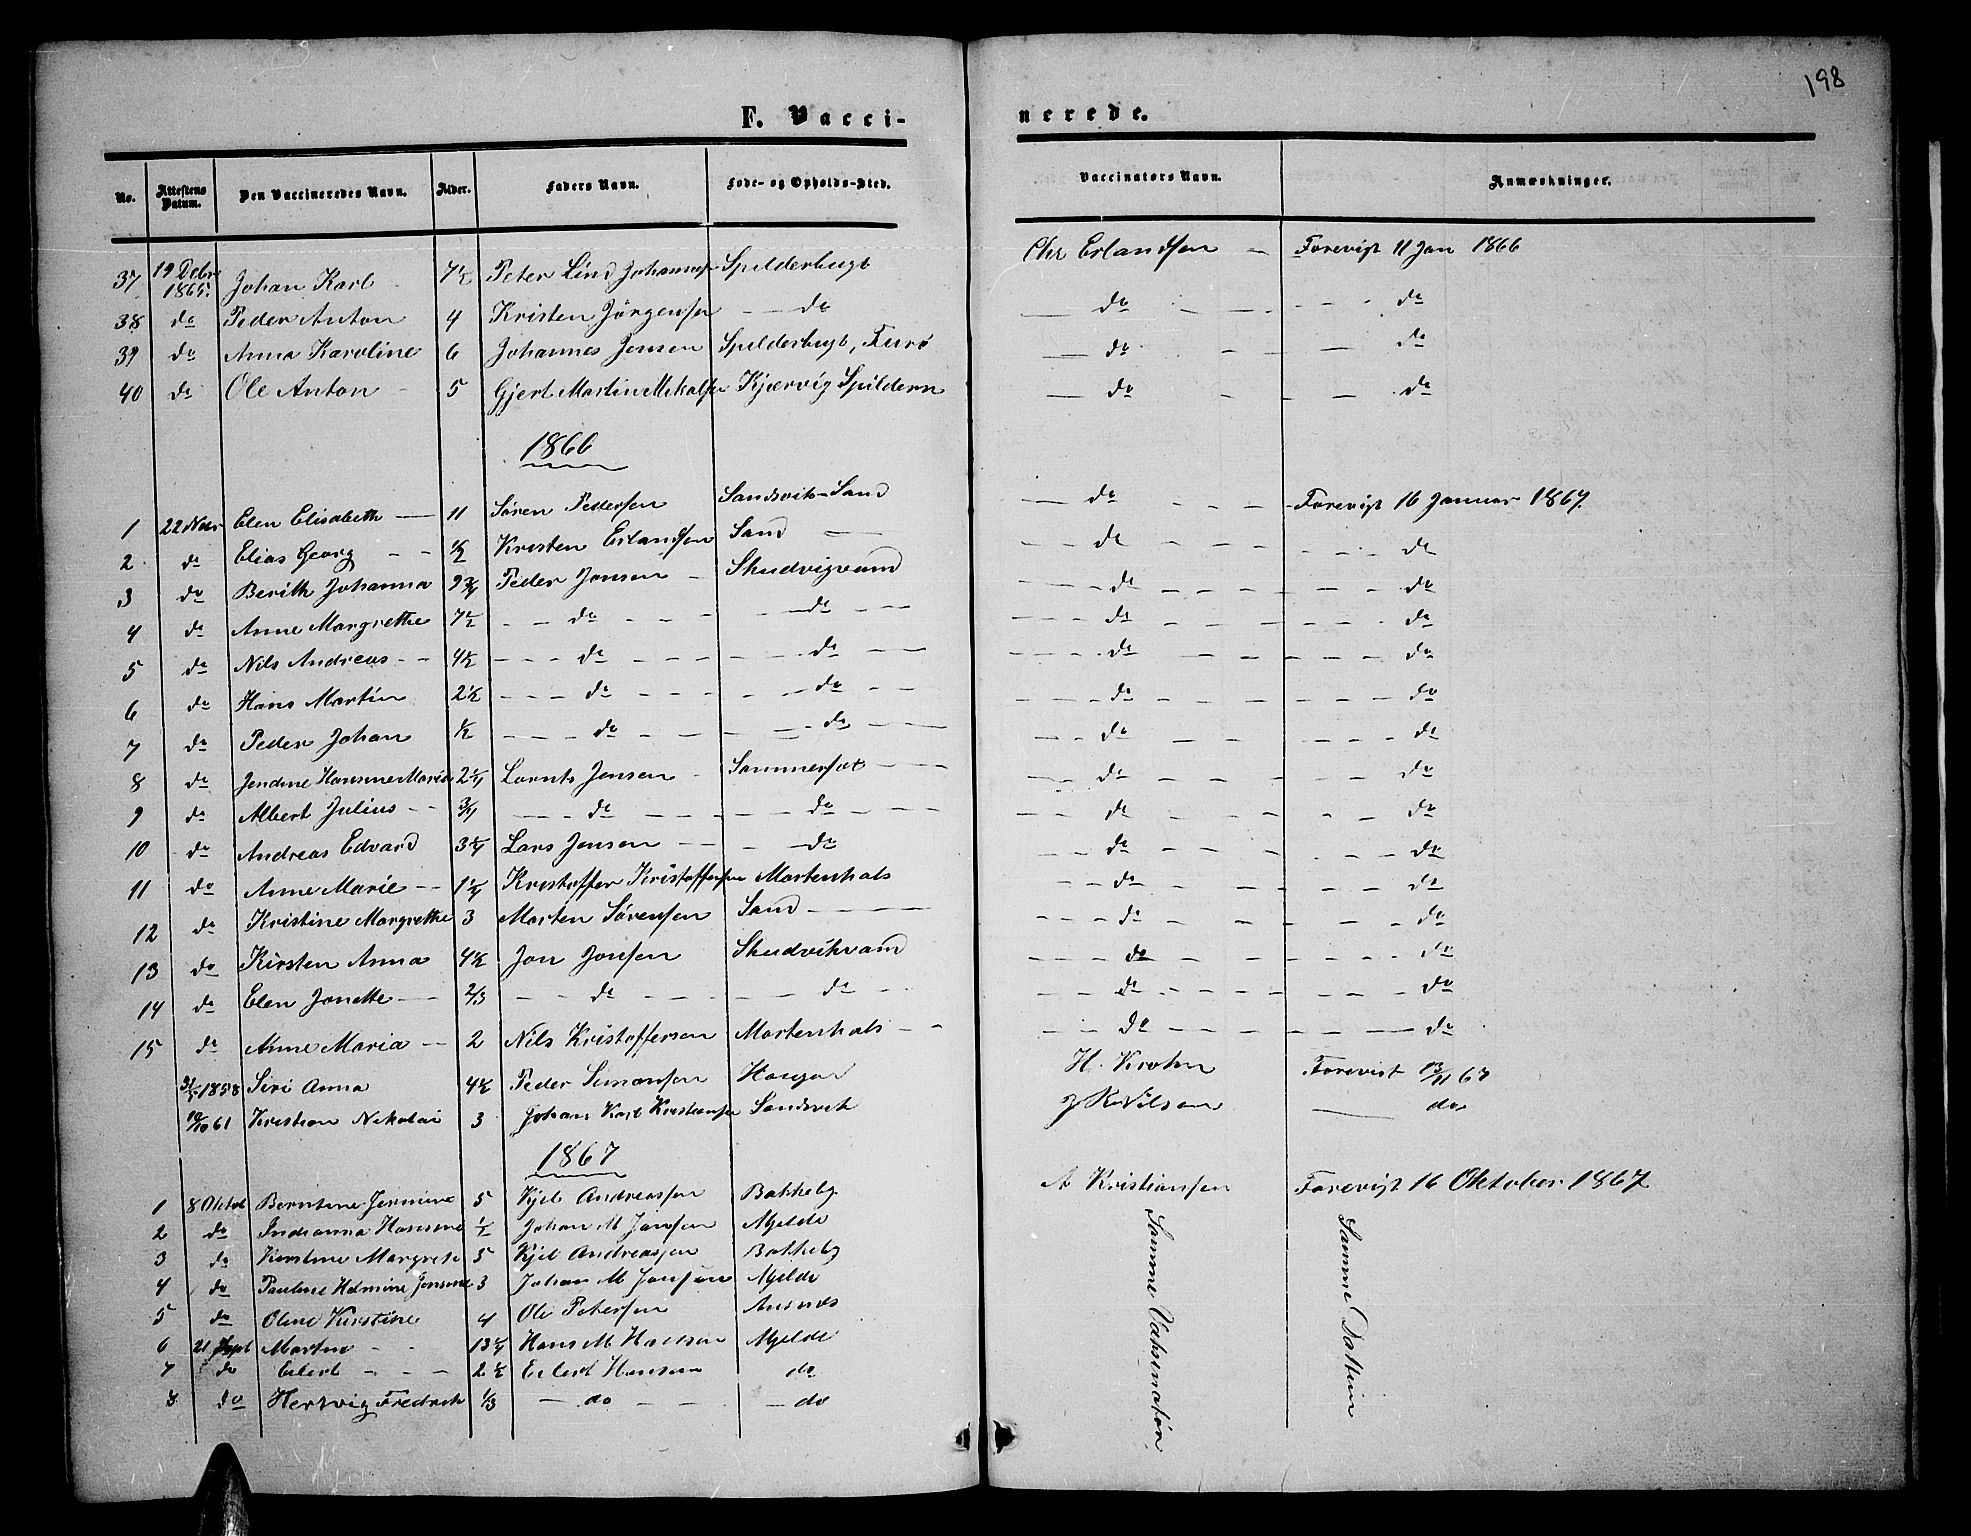 198
F. Vacci- nerede.
No. Attestens Datum. Den Vaccineredes Navn. Alder. Faders Navn. Føde- og Opholds-Sted. Vaccinators Navn. Anmærkninger.
37 19 Debr 1865. Johan Karl 7½ Peter Lind Johannesen Spilderbugt Chr Erlandsen Forevist 11 Jan 1866
38 do Peder Anton 4 Kristen Jørgensen do do do
39 do Anna Karoline 6 Johannes Jensen Spilderbugt, do do
40 do Ole Anton 5 Gjert Martin Mikalsen Kjærvig Spildern do do
1866
1 22 Nov Elen Elisabeth 11 Søren Pedersen Sandsvik-Sand do Forevist 16 Januar 1867.
2 do Elias Georg ½ Kristen Erlandsen Sand do do
3 do Berith Johanna 9¾ Peder Jonsen Skudvigvand do do
4 do Anne Margrethe 7½ do do do do
5 do Nils Andreas 4½ do do do do
6 do Hans Martin 2½ do do do do
7 do Peder Johan ½ do do do do
8 do Jendine Hansine Maria 2¼ Lornts Jensen Sommersæt do do
9 do Albert Julius ¾ do do do do
10 do Andreas Edvard 3¼ Lars Jensen do do do
11 do Anne Marie 1¼ Kristoffer Kristoffersen Mortenhals do do
12 do Kristine Margrethe 3 Morten Sørensen Sand do do
13 do Kirsten Anna 4½ Jon Jonsen Skudvikvand do do
14 do Elen Jonette 2/3 do do do do
15 do Anne Maria 2 Nils Kristoffersen Mortenhals do do
1858 Siri Anna 4½ Peder Simonsen Haugan H. Krohn Forevist 13/11 67
19/10 61 Kristian Nikolai 3 Johan Karl Kristiansen Sandsvik J K Nilsen do
1867
1 8 Oktob Berntine Jermine 5 Kjel Andreassen Bakkeby A Kristiansen Forevist 16 Oktober 1867
2 do Indianna Hansine ½ Johan M Jonsen Mjelde
3 do Kirstine Margrete 5 Kjel Andreassen Bakkeby
4 do Pauline Helmine Jensine 3 Johan M Jonsen Mjelde
5 do Oline Kirstine 4 Ole Petersen Ausnæs
6 21 Sept Martin 13¼ Hans M Hansen Mjelde
7 do Eilert 2½ Eilert Hansen do
8 do Hertvig Fredrik 1/3 do do
Samme Vaksinatør
Samme Dattum